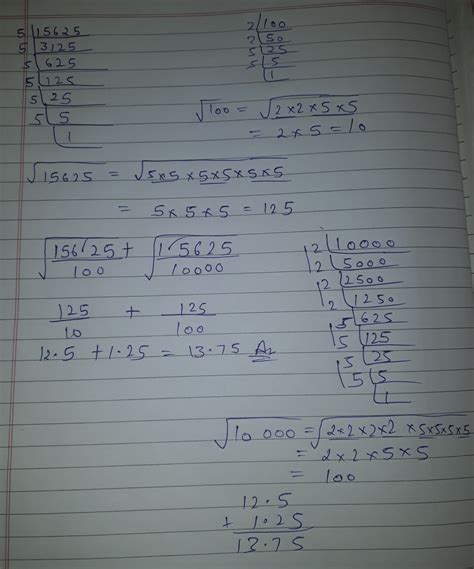 5 | 15625
5 | 3125
5 | 625
5 | 125
5 | 25
5 | 5
1
2 | 100
2 | 50
5 | 25
5 | 5
1
√100 = √2×2×5×5
= 2×5 = 10
√15625 = √5×5×5×5×5×5
= 5×5×5 = 125
√156.25/100 + √1.5625/10000
125/10 + 125/100
12.5 + 1.25 = 13.75 Ans
2 | 10000
2 | 5000
2 | 2500
2 | 1250
5 | 625
5 | 125
5 | 25
5 | 5
1
√10 000 = √2×2×2×2×5×5×5×5
= 2×2×5×5
= 100
12.5
+ 1.25
13.75